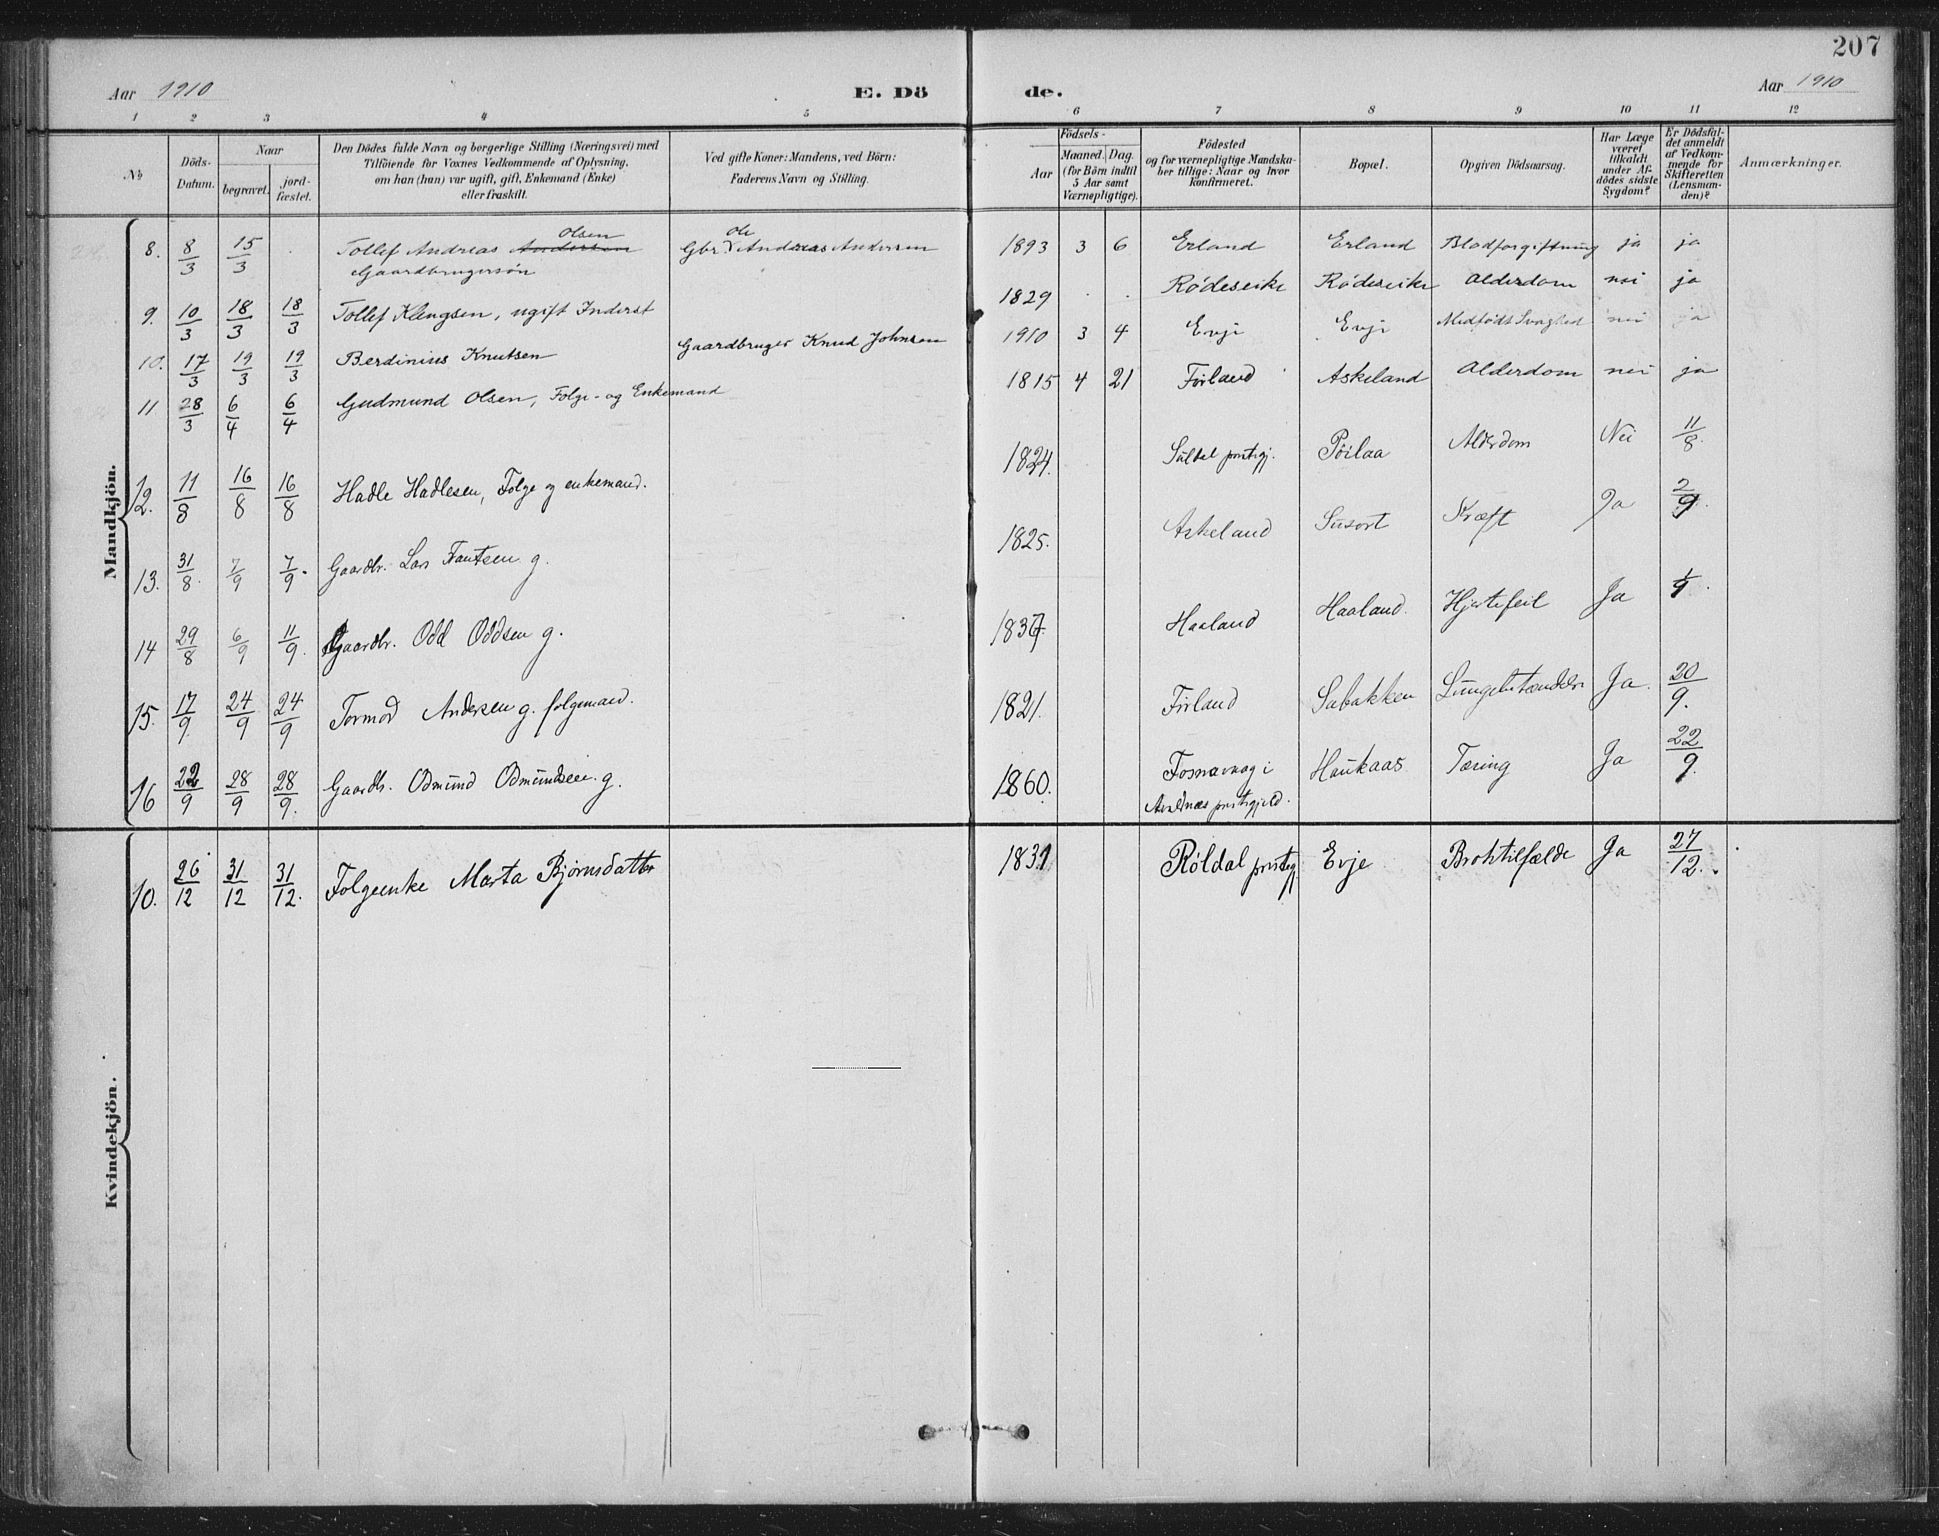 207
Aar 1910
E. Dö
de.
Aar 1910
1 2 3 4 5 6 7 8 9 10 11 12
No
Döds-Datum.
Naar
begravet.
jord-fæstet.
Den Dödes fulde Navn og borgerlige Stilling (Næringsvei) med
Tilföiende for Voxnes Vedkommende af Oplysning,
om han (hun) var ugift, gift, Enkemand (Enke)
eller fraskilt.
Ved gifte Koner: Mandens, ved Börn:
Faderens Navn og Stilling.
Födsels-
Aar
Maaned. Dag.
(for Börn indtil
5 Aar samt
Værnepligtige).
Födested
og for værnepligtige Mandska-
ber tillige: Naar og hvor
konfirmeret.
Bopæl.
Opgiven Dödsaarsag.
Har Læge
været
tilkaldt
under Af-
dödes sidste
Sygdom?
Er Dödsfal-
det anmeldt
af Vedkom-
mende for
Skifteretten
(Lensman-
den)?
Anmærkninger.
Mandkjön.
8. 8/3 15/3 Tollef Andreas Andersen Olsen Gbr. Ole Andreas Andersen 1893 3 6 Erland Erland Blodforgiftning ja ja
Gaardbrugersön
9. 10/3 18/3 18/3 Tollef Klengsen, ugift Inderst 1829 Rödeseike Rödeseike Alderdom nei ja
10. 17/3 19/3 19/3 Berdinius Knutsen Gaardbruger Knud Johnsen 1910 3 4 Evji Evji Medfödt Svaghed nei ja
11 28/3 6/4 6/4 Gudmund Olsen, Folge- og Enkemand 1815 4 21 Förland Askeland Alderdom nei ja
12. 11/8 16/8 16/8 Hadle Hadlesen, Folge og enkemand. 1824. Suldal prstgj. Alderdom Nei 11/8.
13. 31/8. 7/9 7/9. Gaardbr. Lars g. 1825. Askeland Susort Kræft Ja 2/9
14 29/8 6/9 11/9. Gaardbr. Odd Oddsen g. 1837. Haaland Haaland. Hjertefeil Ja 1/9.
15. 17/9 24/9 24/9 Tormod Andersen g. folgemand. 1821. Förland Sabakken Lungebetændelse Ja. 20/9.
16 22/9 28/9 28/9. Gaardb. Odmund Odmundsen g. 1860. Haukaas Tæring Ja 22/9.
Avaldsnes prstgjeld.
Kvindekjön.
10. 26/12 31/12 31/12. Folgeenke Marta Bjørnsdatter 1831 Røldal prstgj Evje Broktilfælde Ja 27/12.